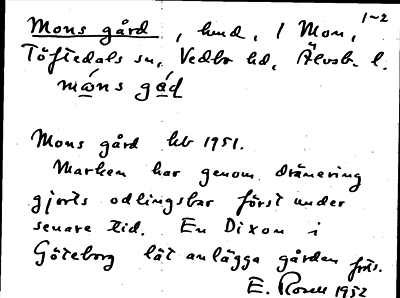 1-2
Mons gård, hmd, 1 Mon,
Töftedals sn, Vedbo hd, Älvsb. l.
mɷ́ns gád
Mons gård kb 1951.
Marken har genom dränering
gjorts odlingsbar först under
senare tid. En Dixon i
Göteborg lät anlägga gården
E. Rosell 1952